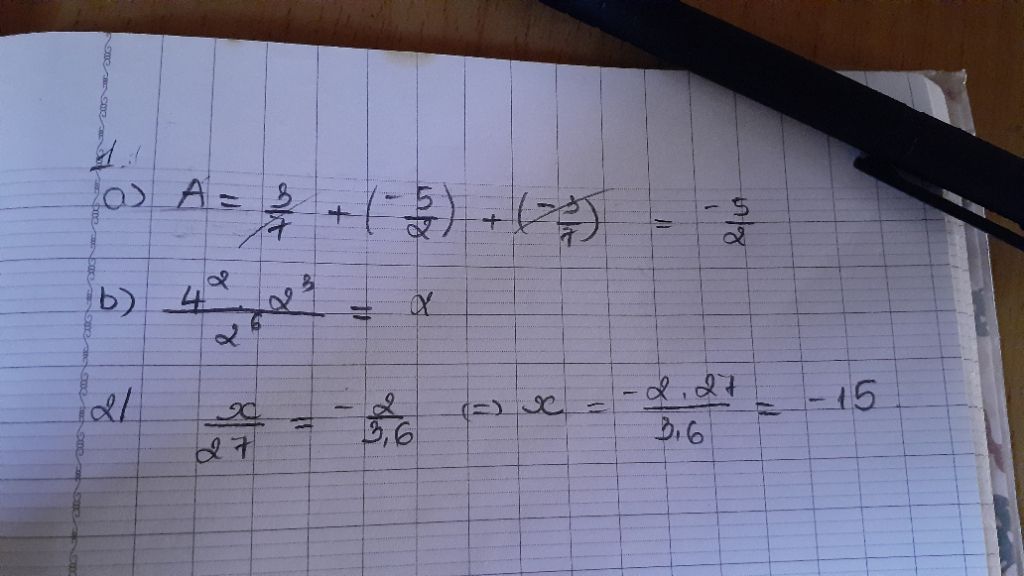 1.
a) A = 3/7 + (-5/2) + (-3/7) = -5/2
b) 4² . 2³ / 2⁶ = 2
2/ x/27 = -2/3,6 (=) x = -2.27/3,6 = -15